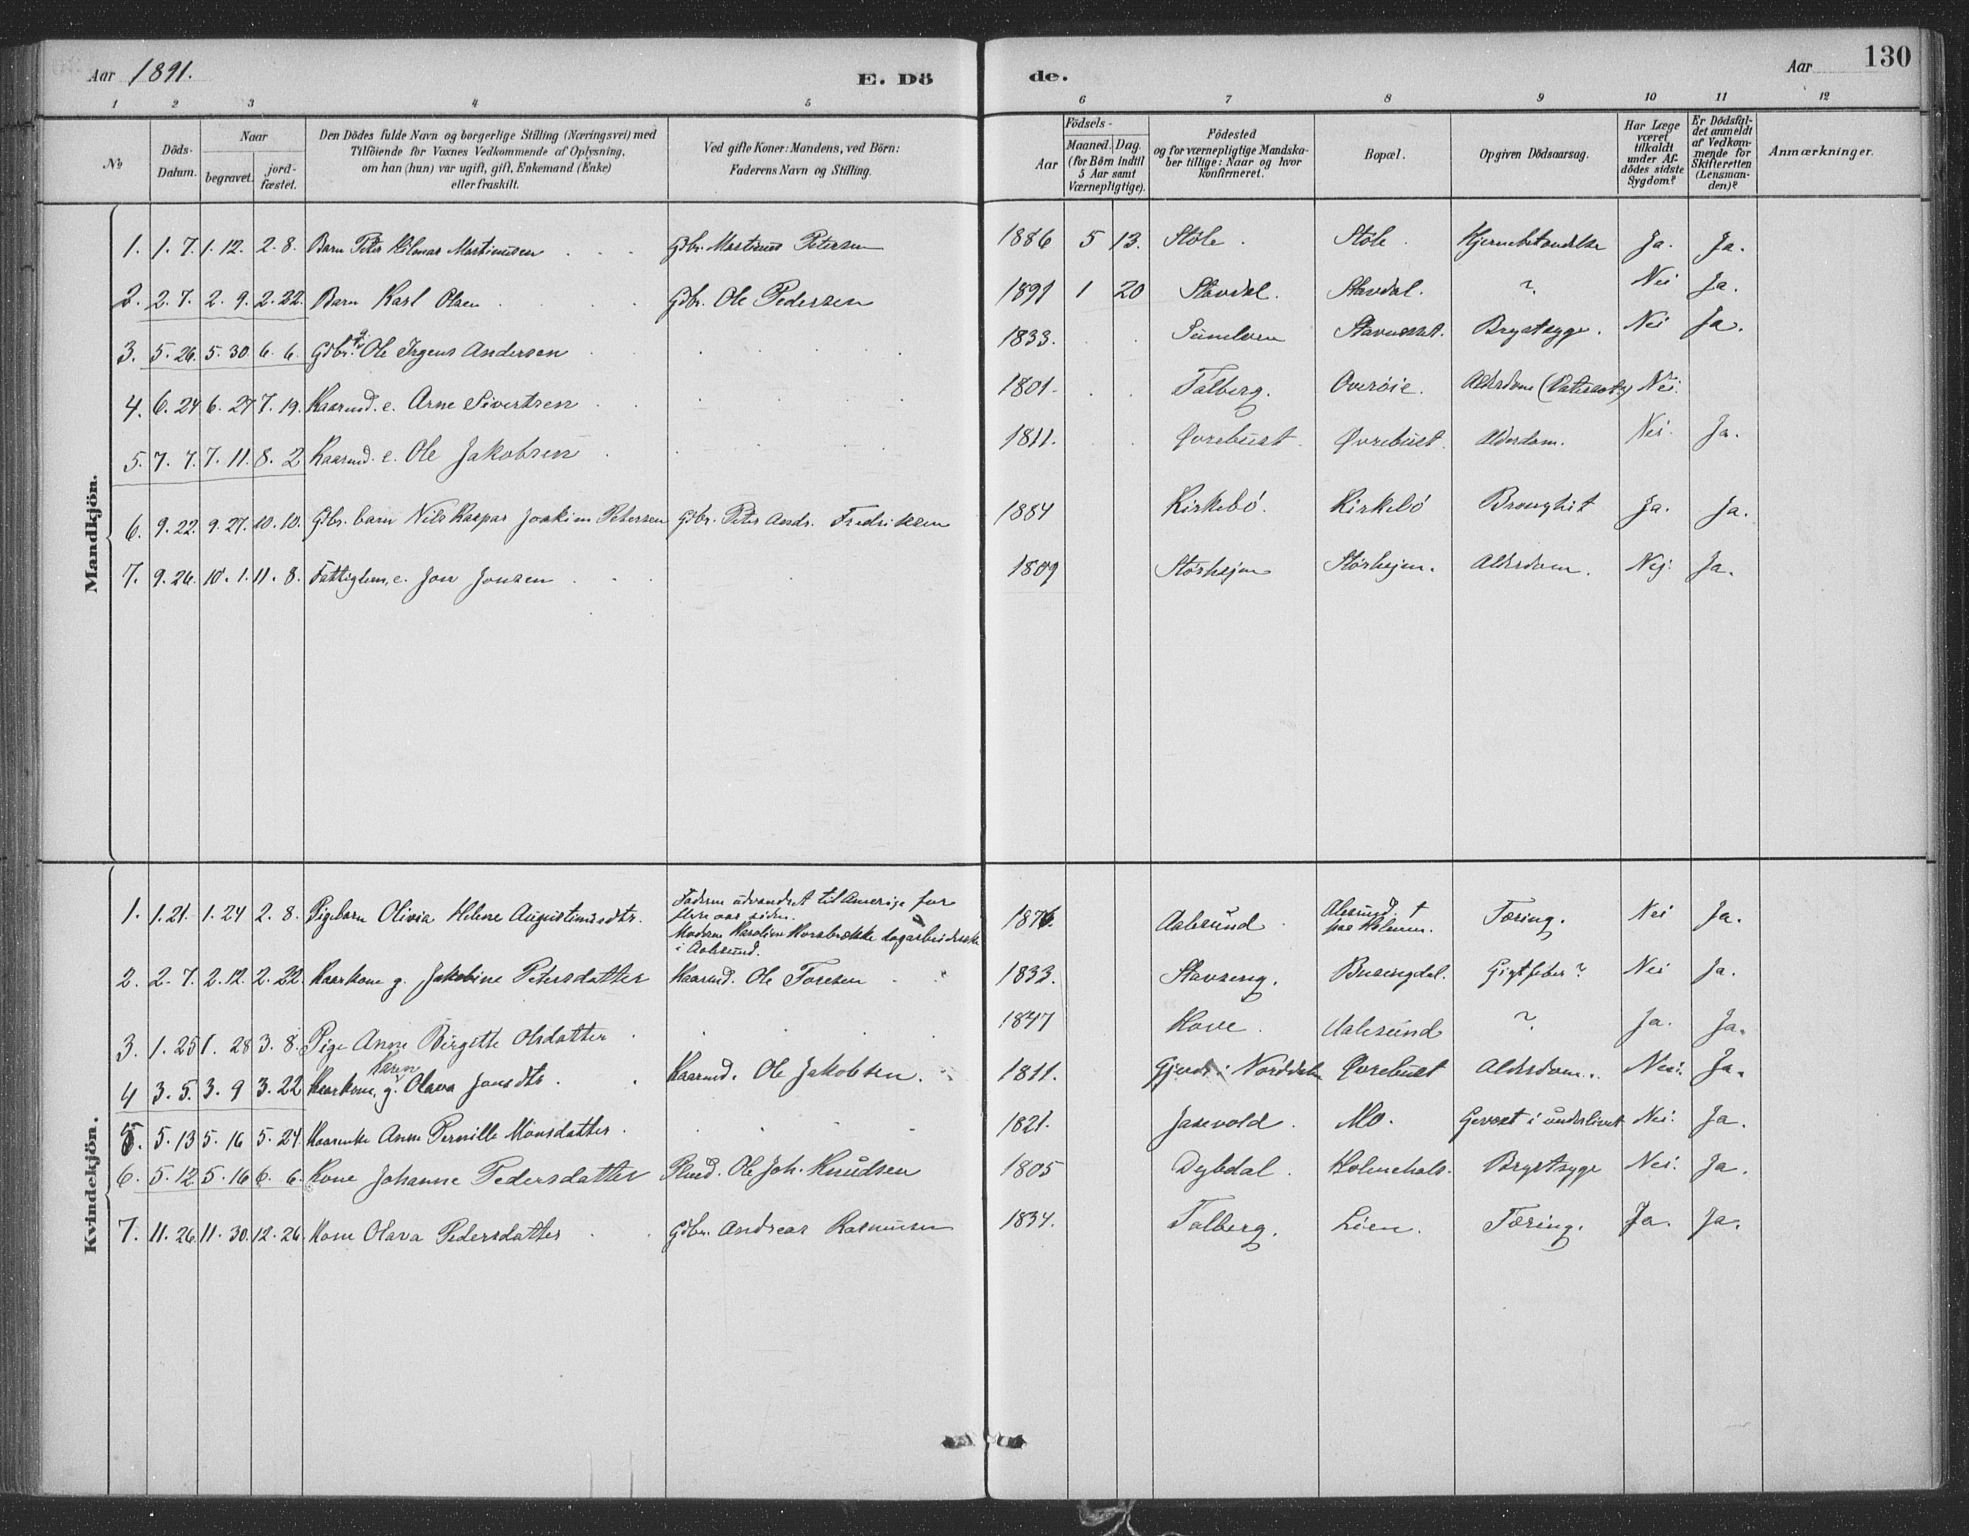 Aar 1891. E. Dö de. Aar 130
1 2 3 4 5 6 7 8 9 10 11 12
№
Döds-Datum.
Naar
begravet.
jord-fæstet.
Den Dödes fulde Navn og borgerlige Stilling (Næringsvei) med
Tilföiende for Voxnes Vedkommende af Oplysning,
om han (hun) var ugift, gift, Enkemand (Enke)
eller fraskilt.
Ved gifte Koner: Mandens, ved Börn:
Faderens Navn og Stilling.
Födsels-
Aar
Maaned. Dag.
(for Börn indtil
5 Aar samt
Værnepligtige).
Födested
og for værnepligtige Mandska-
ber tillige: Naar og hvor
konfirmeret.
Bopæl.
Opgiven Dödsaarsag.
Har Læge
været
tilkaldt
under Af-
dödes sidste
Sygdom?
Er Dödsfal-
det anmeldt
af Vedkom-
mende for
Skifteretten
(Lensman-
den)?
Anmærkninger.
Mandkjön.
1. 1. 7. 1. 12. 2. 8. Barn Peter Hilmar Martinusen Gdbr. Martinus Petersen 1886 5 13. Støle. Støle. Hjernebetændelse Ja. Ja.
2. 2. 7. 2. 9. 2. 22. Barn Karl Olsen Gdbr. Ole Pedersen 1891 1 20 Stavdal. Stavdal. ? Nei Ja.
3. 5. 26. 5. 30. 6. 6. Gdbr. g. Ole Irgens Andersen 1833. Sunelven Brystsyge. Nei Ja.
4. 6. 24 6. 27 7. 19. Kaarmd. e. Arne Sivertsen 1801. Talberg. Overøie. Alderdom Nei.
5. 7. 7. 7. 11. 8. 2 Kaarmd. e. Ole Jakobsen 1811. Øvrebust Øvrebust. Alderdom. Nei. Ja.
6. 9. 22. 9. 27. 10. 10. Gdbr. barn Nils Kaspar Joakim Petersen Gdbr. Peter Andr. Fredriksen 1884 Kirkebø. Kirkebø Bronghit Ja. Ja.
7. 9. 26. 10. 1. 11. 8. Fattiglem, e. Jon Jonsen 1809 Storhejen Storhejen. Alderdom. Nej. Ja.
Kvindekjön.
1. 1. 21. 1. 24 2. 8. Pigebarn Olivia Helene Augustinusdtr. Faderen udvandret til Amerige for
flere aar siden.
Moderen Karoline Horsbrække dagarbeiderske
i Aalesund. 1876. Aalesund Alesund. †
paa Holmen. Tæring. Nei Ja.
2. 2. 7. 2. 12. 2. 22. Kaarkone g. Jakobine Petersdatter Kaarmd. Ole Toresen 1833. Stavseng. Busengdal. Gigtfeber? Nei Ja.
3. 1. 25 1. 28 3. 8. Pige Anne Birgette Olsdatter 1847 Hove. Aalesund ? Ja. Ja.
4 3. 5. 3. 9 3. 22 Kaarkone, g. Karen Olava Jonsdtr. Kaarmd. Ole Jakobsen. 1811. Gjerde i Norddalen Øvrebust Alderdom. Nei. Ja.
5. 5. 13 5. 16 5. 24 Kaarenke Anne Pernille Monsdatter. 1821. Jasevold. Mo. Gevext i underlivet Nei. Ja.
6. 5. 12 5. 16 6. 6. Kone Johanne Pedersdatter Plmd. Ole Joh. Knudsen 1805 Dybdal. Holmehals. Brystsyge Nei. Ja.
7. 11. 26. 11. 30. 12. 26. Kone Olava Pedersdatter Gdbr. Andreas Rasmusen 1834. Talberg. Lien. Tæring. Ja. Ja.